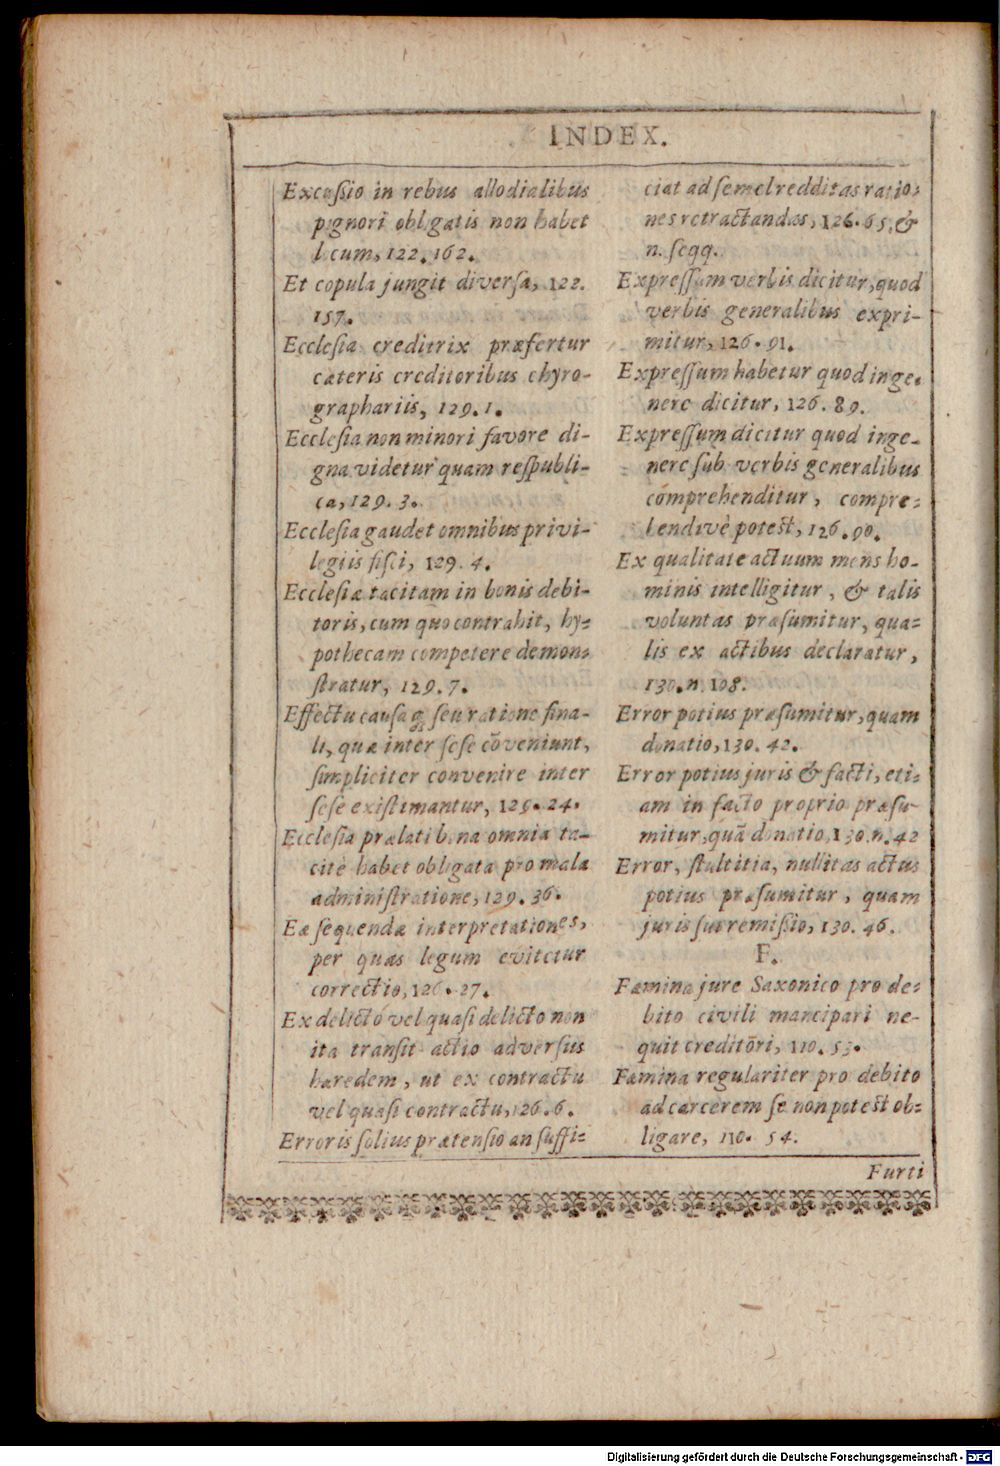 INDEX.
Excussio in rebus allodialibus
pignori obligatis non habet
locum, 122. 162.
Et copula jungit diversa, 122.
157.
Ecclesia creditrix præfertur
cæteris creditoribus chyro-
graphariis, 129. 1.
Ecclesia non minori favore di-
gna videtur quam respubli-
ca, 129. 3.
Ecclesia gaudet omnibus privi-
legiis fisci, 129. 4.
Ecclesiæ tacitam in bonis debi-
toris, cum quo contrahit, hy-
pothecam competere demon-
stratur, 129. 7.
Effectu causaq; seu ratione fina-
li, quæ inter sese cōveniunt,
simpliciter convenire inter
sese existimantur, 129. 24.
Ecclesia prælati bona omnia ta-
citè habet obligata pro mala
administratione, 129. 36.
Eæ sequendæ interpretationes,
per quas legum evitetur
correctio, 126. 27.
Ex delicto vel quasi delicto non
ita transit actio adversus
hæredem, ut ex contractu
vel quasi contractu, 126. 6.
Erroris solius prætensio an suffi-
ciat ad semel redditas ratio-
nes retractandas, 126. 65. &
n. seqq.
Expressum verbis dicitur, quod
verbis generalibus expri-
mitur, 126. 91.
Expressum habetur quod in ge-
nere dicitur, 126. 89.
Expressum dicitur quod in ge-
nere sub verbis generalibus
comprehenditur, compre-
hendivè potest, 126. 90.
Ex qualitate actuum mens ho-
minis intelligitur, & talis
voluntas præsumitur, qua-
lis ex actibus declaratur,
130. n. 108.
Error potius præsumitur, quam
donatio, 130. 42.
Error potius juris & facti, eti-
am in facto proprio præsu-
mitur, quā donatio, 130. n. 42
Error, stultitia, nullitas actus
potius præsumitur, quam
juris sui remissio, 130. 46.
F.
Fæmina jure Saxonico pro de-
bito civili mancipari ne-
quit creditōri, 110. 53.
Fæmina regulariter pro debito
ad carcerem se non potest ob-
ligare, 110. 54.
Furti
Digitalisierung gefördert durch die Deutsche Forschungsgemeinschaft - DFG